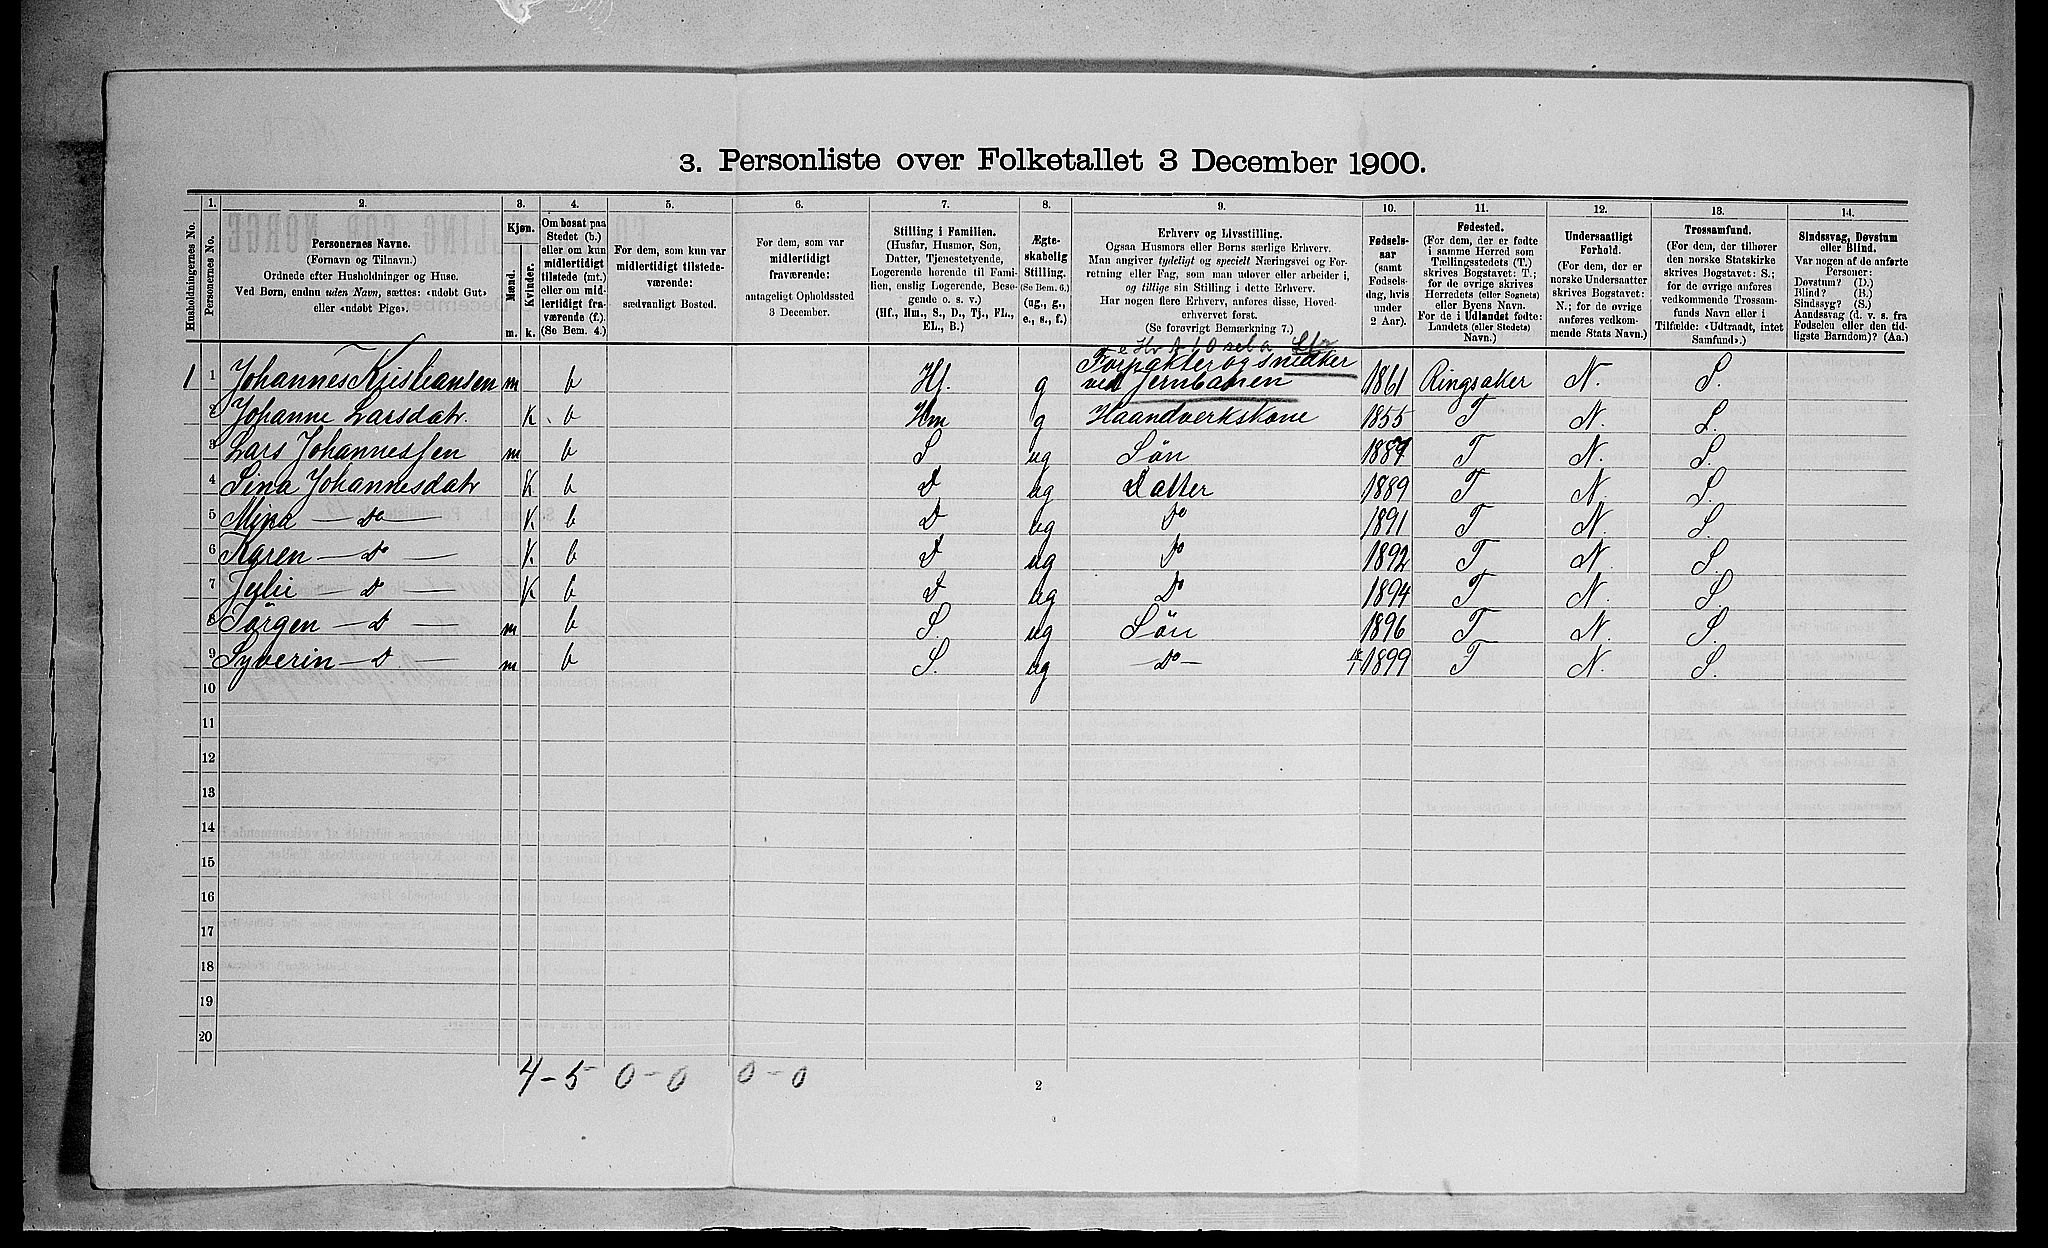 3. Personliste over Folketallet 3 December 1900.
1. 2. 3. 4. 5. 6. 7. 8. 9. 10. 11. 12. 13. 14.
Husholdningernes No.
Personernes No.
Personernes Navne.
(Fornavn og Tilnavn.)
Ordnede efter Husholdninger og Huse.
Ved Børn, endnu uden Navn, sættes: «udøbt Gut»
eller «udøbt Pige».
Kjøn.
Mænd. Kvinder.
m. k.
Om bosat paa
Stedet (b.)
eller om kun
midlertidigt
tilstede (mt.)
eller om mid-
lertidigt fra-
værende (f.).
(Se Bem. 4.)
For dem, som kun var
midlertidigt tilstede-
værende:
sædvanligt Bosted.
For dem, som var
midlertidigt
fraværende:
antageligt Opholdssted
3 December.
Stilling i Familien.
(Husfar, Husmor, Søn,
Datter, Tjenestetyende,
Logerende hørende til Fami-
lien, enslig Logerende, Besø-
gende o. s. v.)
(Hf., Hm., S., D., Tj., FL.,
EL., B.)
Ægte-
skabelig
Stilling.
(Se Bem. 6.)
(ug., g.,
e., s., f.)
Erhverv og Livsstilling.
Ogsaa Husmors eller Børns særlige Erhverv.
Man angiver tydeligt og specielt Næringsvei og For-
retning eller Fag, som man udøver eller arbeider i,
og tillige sin Stilling i dette Erhverv.
Har nogen flere Erhverv, anføres disse, Hoved-
erhvervet først.
(Se forøvrigt Bemærkning 7.)
Fødsels-
aar
(samt
Fødsels-
dag, hvis
under
2 Aar).
Fødested.
(For dem, der er fødte
i samme Herred som
Tællingsstedets (T.)
skrives Bogstavet: T.;
for de øvrige skrives
Herredets (eller Sognets)
eller Byens Navn.
For de i Udlandet fødte:
Landets (eller Stedets)
Navn.)
Undersaatligt
Forhold.
(For dem, der er
norske Undersaatter
skrives Bogstavet:
N.; for de øvrige
anføres vedkom-
mende Stats Navn.)
Trossamfund.
(For dem, der tilhører
den norske Statskirke
skrives Bogstavet: S.;
for de øvrige anføres
vedkommende Trossam-
funds Navn eller i
Tilfælde: «Udtraadt, intet
Samfund».)
Sindssvag, Døvstum
eller Blind.
Var nogen af de anførte
Personer:
Døvstum? (D.)
Blind? (B.)
Sindssyg? (S.)
Aandssvag (d. v. s. fra
Fødselen eller den tid-
ligste Barndom)? (Aa.)
1 1 Johannes Kristiansen m b Hf. g Forpakter og snedker ved Jernbanen 1861 Ringsaker N. S.
2 Johanne Larsdatr. K. b Hm g Haandverkskone 1855 T N. S.
3 Lars Johannessen m b S ug Søn 1887 T N. S.
4 Sina Johannesdatr K. b D ug Datter 1889 T N. S.
5 Mina — Do — K. b D ug Do 1891 T N. S.
6 Karen — Do — K. b D ug Do 1892 T N. S.
7 Julie — D — K b D ug Do 1894 T N. S.
8 Jørgen — D — m b S. ug Søn 1896 T N. S.
9 Syverin — D — m b S. ug — Do — 1899 T N. S.
10
11
12
13
14
15
16
17
18
19
20
4 - 5 0 - 0 0 - 0
2